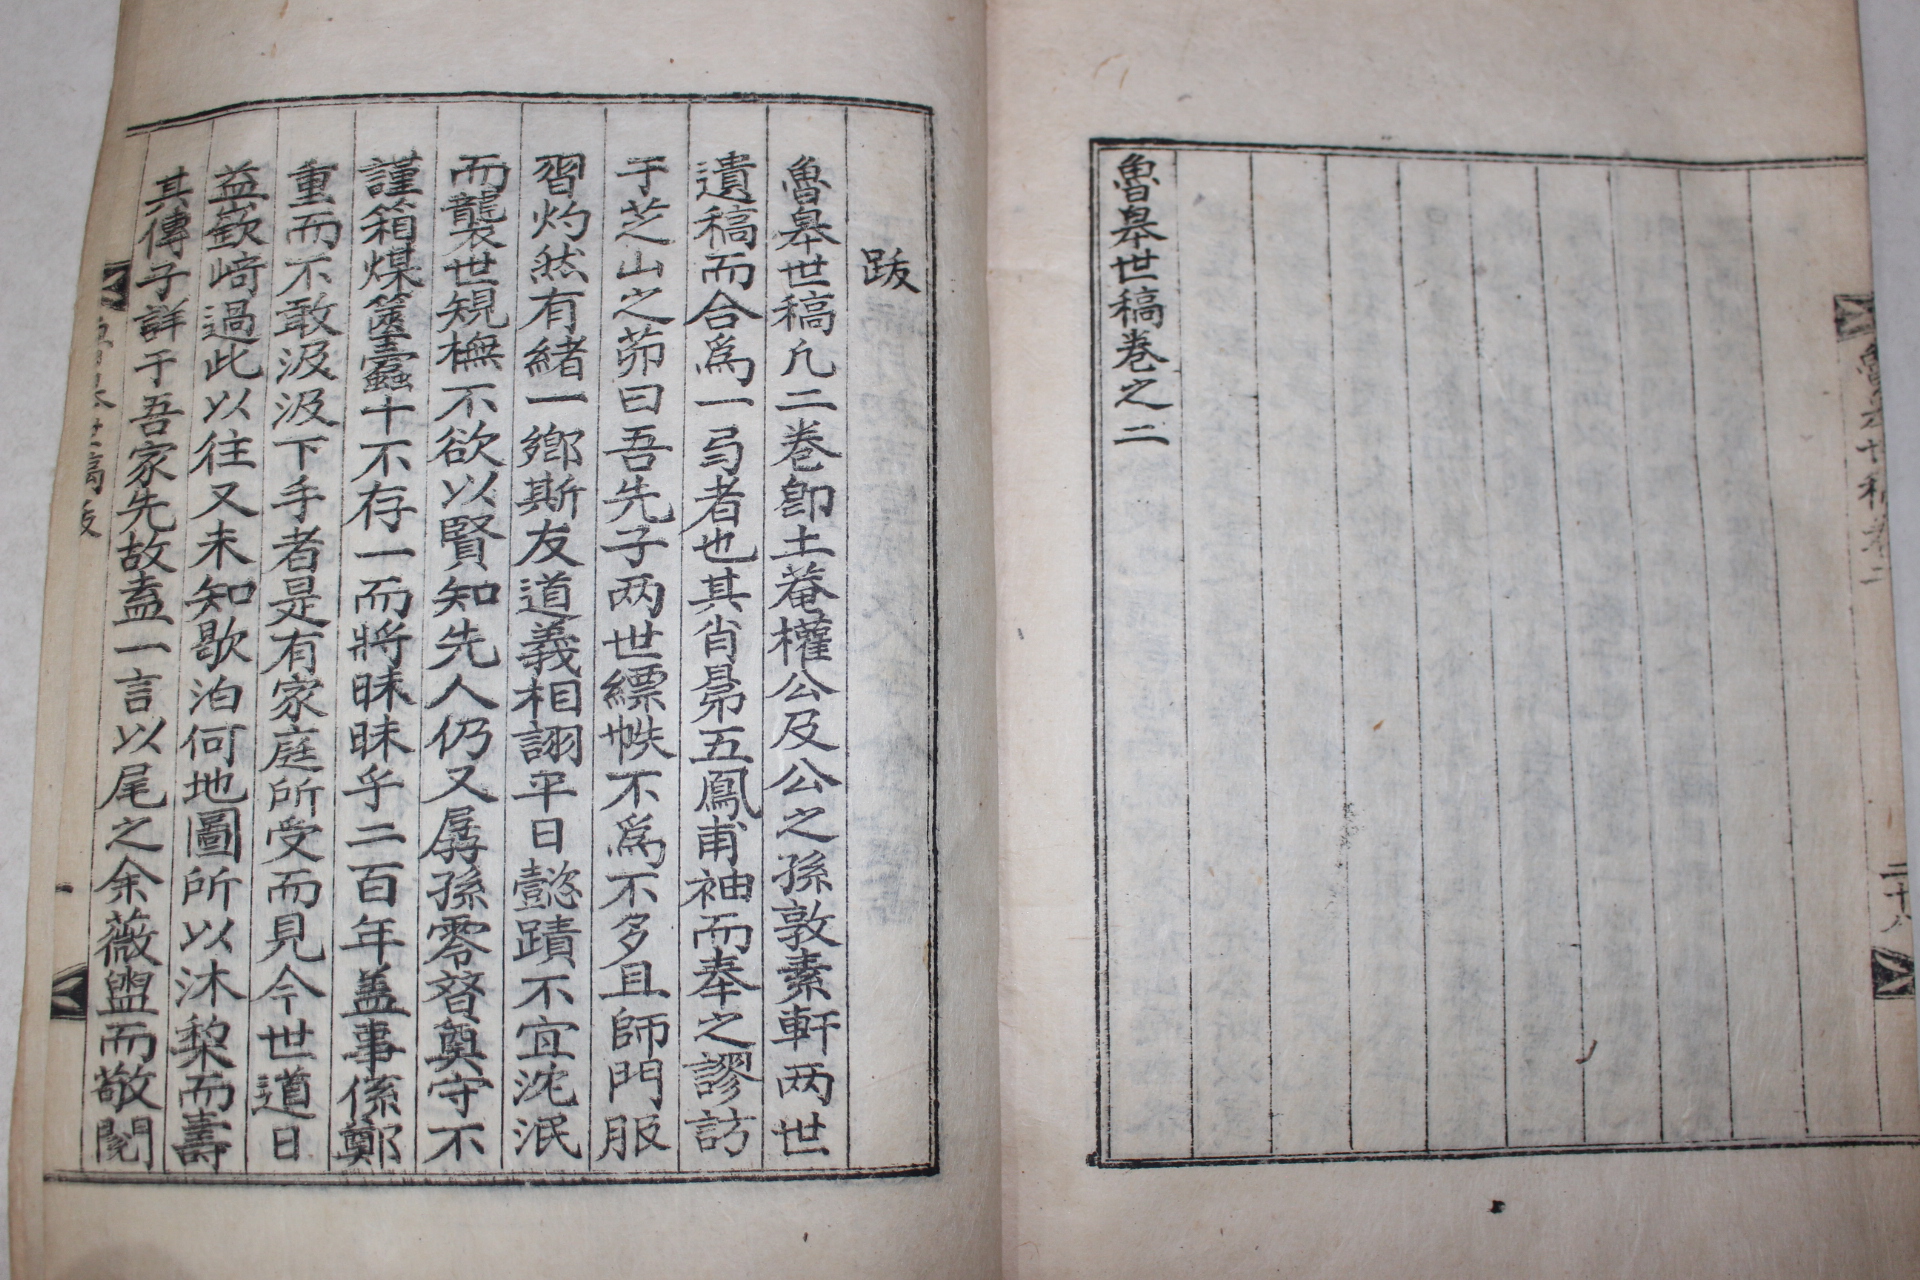 魯皐世稿卷之二
二十八
跋
魯皐世稿凡二卷卽土菴權公及公之孫敦素軒两世
遺稿而合爲一弓者也其肖昴五鳳甫袖而奉之謬訪
于芝山之茆曰吾先子两世縹帙不爲不多且師門服
習灼然有緖一鄕斯友道義相詡平日懿蹟不宜沈泯
而襲世規橅不欲以賢知先人仍又孱孫零替奠守不
謹箱煤篋蠧十不存一而將昧昧乎二百年盖事係鄭
重而不敢汲汲下手者是有家庭所受而見今世道日
益嶔崎過此以往又未知歇泊何地圖所以沐棃而壽
其傳子詳于吾家先故盍一言以尾之余薇盥而敬閱
世稿跋
一